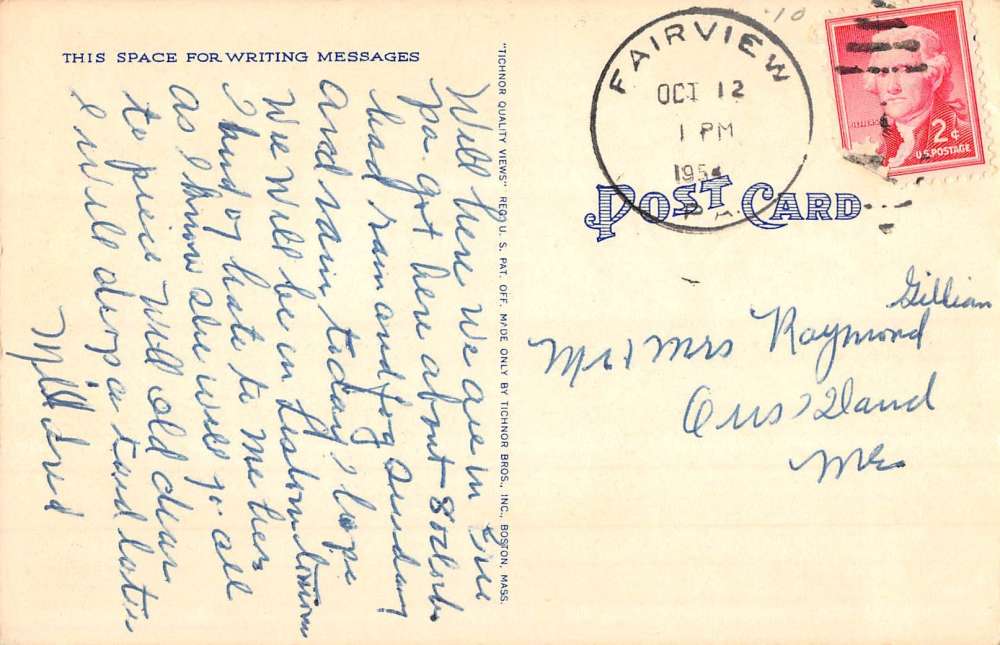 THIS SPACE FOR WRITING MESSAGES
Well here we are in Erie
pa. got here about 8 oclock
had rain and fog Sunday
and rain today. I hope
We will be in
I kind of hate to me her
as I know she will go all
to piece Well old dear
I will drop a card later
Mildred
"TICHNOR QUALITY VIEWS" REG'D U. S. PAT. OFF. MADE ONLY BY TICHNOR BROS., INC., BOSTON, MASS.
10
FAIRVIEW
OCT 12
1 PM
1954
P A.
JEFFERSON
2¢
U.S. POSTAGE
POST CARD
Gillian
Mr & Mrs Raymond
Orrs Island
Me